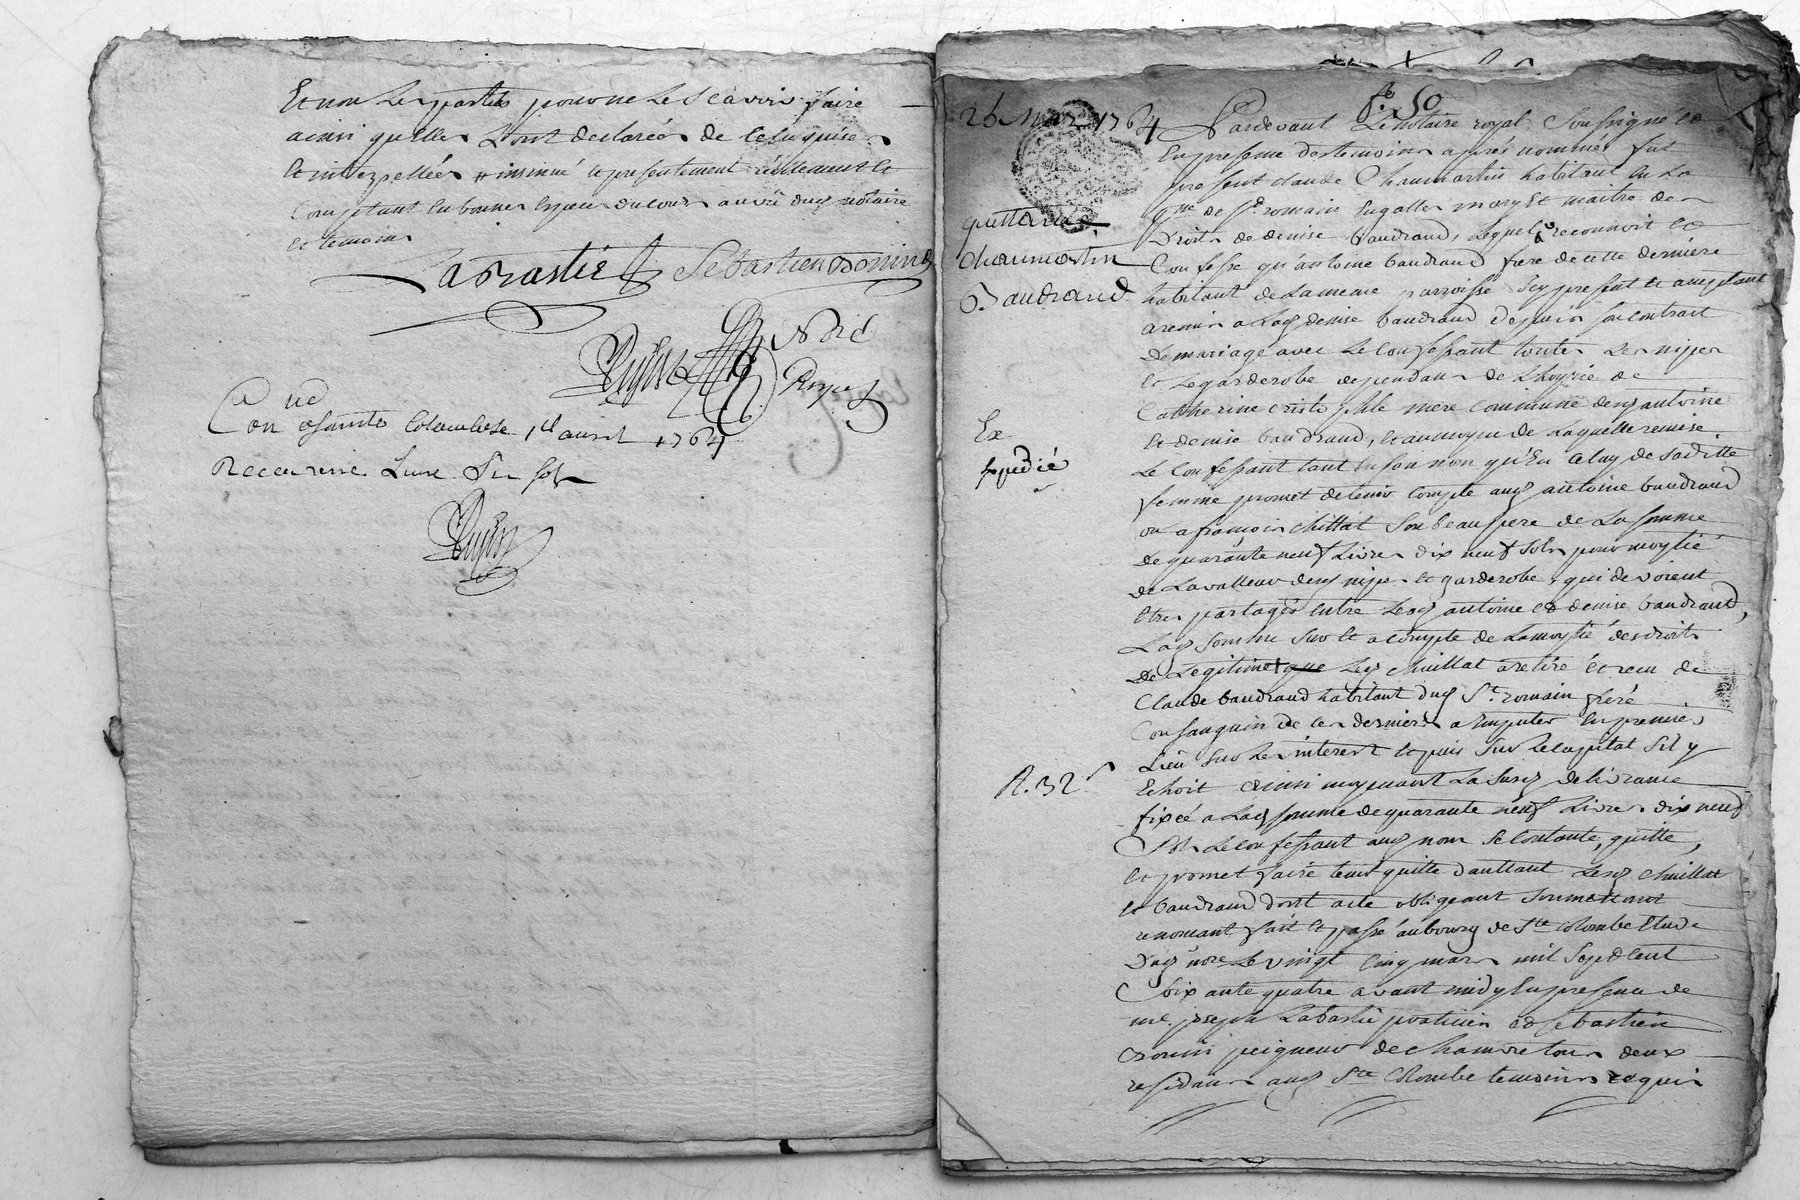 Et non les parties pour ne le scavoir faire
ainsi quelles l'ont declarées de ce enquises
et interpellées # insinué et presentement réellement et
comptant en bonnes especes du cour au vu dud notaire
et temoins
Labastie Sebastien Bonin
Noré
Royal
Con. ne
a Sainte Colombe le avril 1764
Receu
fo. 50
26 Mars 1764
quittance
chaumartin
Baudrand
Expedié
R. 32 s
Pardevant le notaire royal soussigné et
en presence des temoins apres nommés fut
present claude Chaumartin habitant en la
psse de St romain en galles mary et maitre des
Droits de denise baudrand, lequel a reconnoit et
Confesse qu'antoine baudrand frere de cette derniere
habitant de la meme parroisse icy present et acceptant
a remis a lad denise baudrand depuis son contrat
De mariage avec le confessant toutes les nippes
et le garderobe dependans de l'hoyrie de
Catherine mere commune desd antoine
et denise baudrand, et au moyen de laquelle remise
Le confessant tant en son nom qu'en celuy de sa ditte
femme promet de tenir compte aud antoine baudrand
ou a francois chuillat son beau pere de la somme
de quarante neuf livres dix neuf sols pour moytié
de la valleur desd nipes et garderobe qui devoient
etre partagés entre lesd antoine et denise baudrand,
Lad somme sur et a compte de la moytié des droits
de Legitime que led chuillat a retiré et receu de
Claude baudrand habitant dud St romain frere
Consanguin de ces derniers a imputer en premier
Lieu sur les interest et puis sur le capital s'il y
Echoit ainsi moyenant la susd delivrance
fixée a lad somme de quarante neuf livres dix neuf
sols le confessant aud nom se contante, quitte,
et promet faire tenir quitte d'auttant lesd chuillat
et baudrand dont acte obligeant soumettant
renoncant fait et passé au bourg de Ste colombe Etude
Dud nore le vingt cinq mars mil sept cent
soixante quatre avant midy en presence de
me. joseph Labastie praticien et sebastien
Bonin peigneur de chanvre tous deux
residans aud Ste Colombe temoins requis